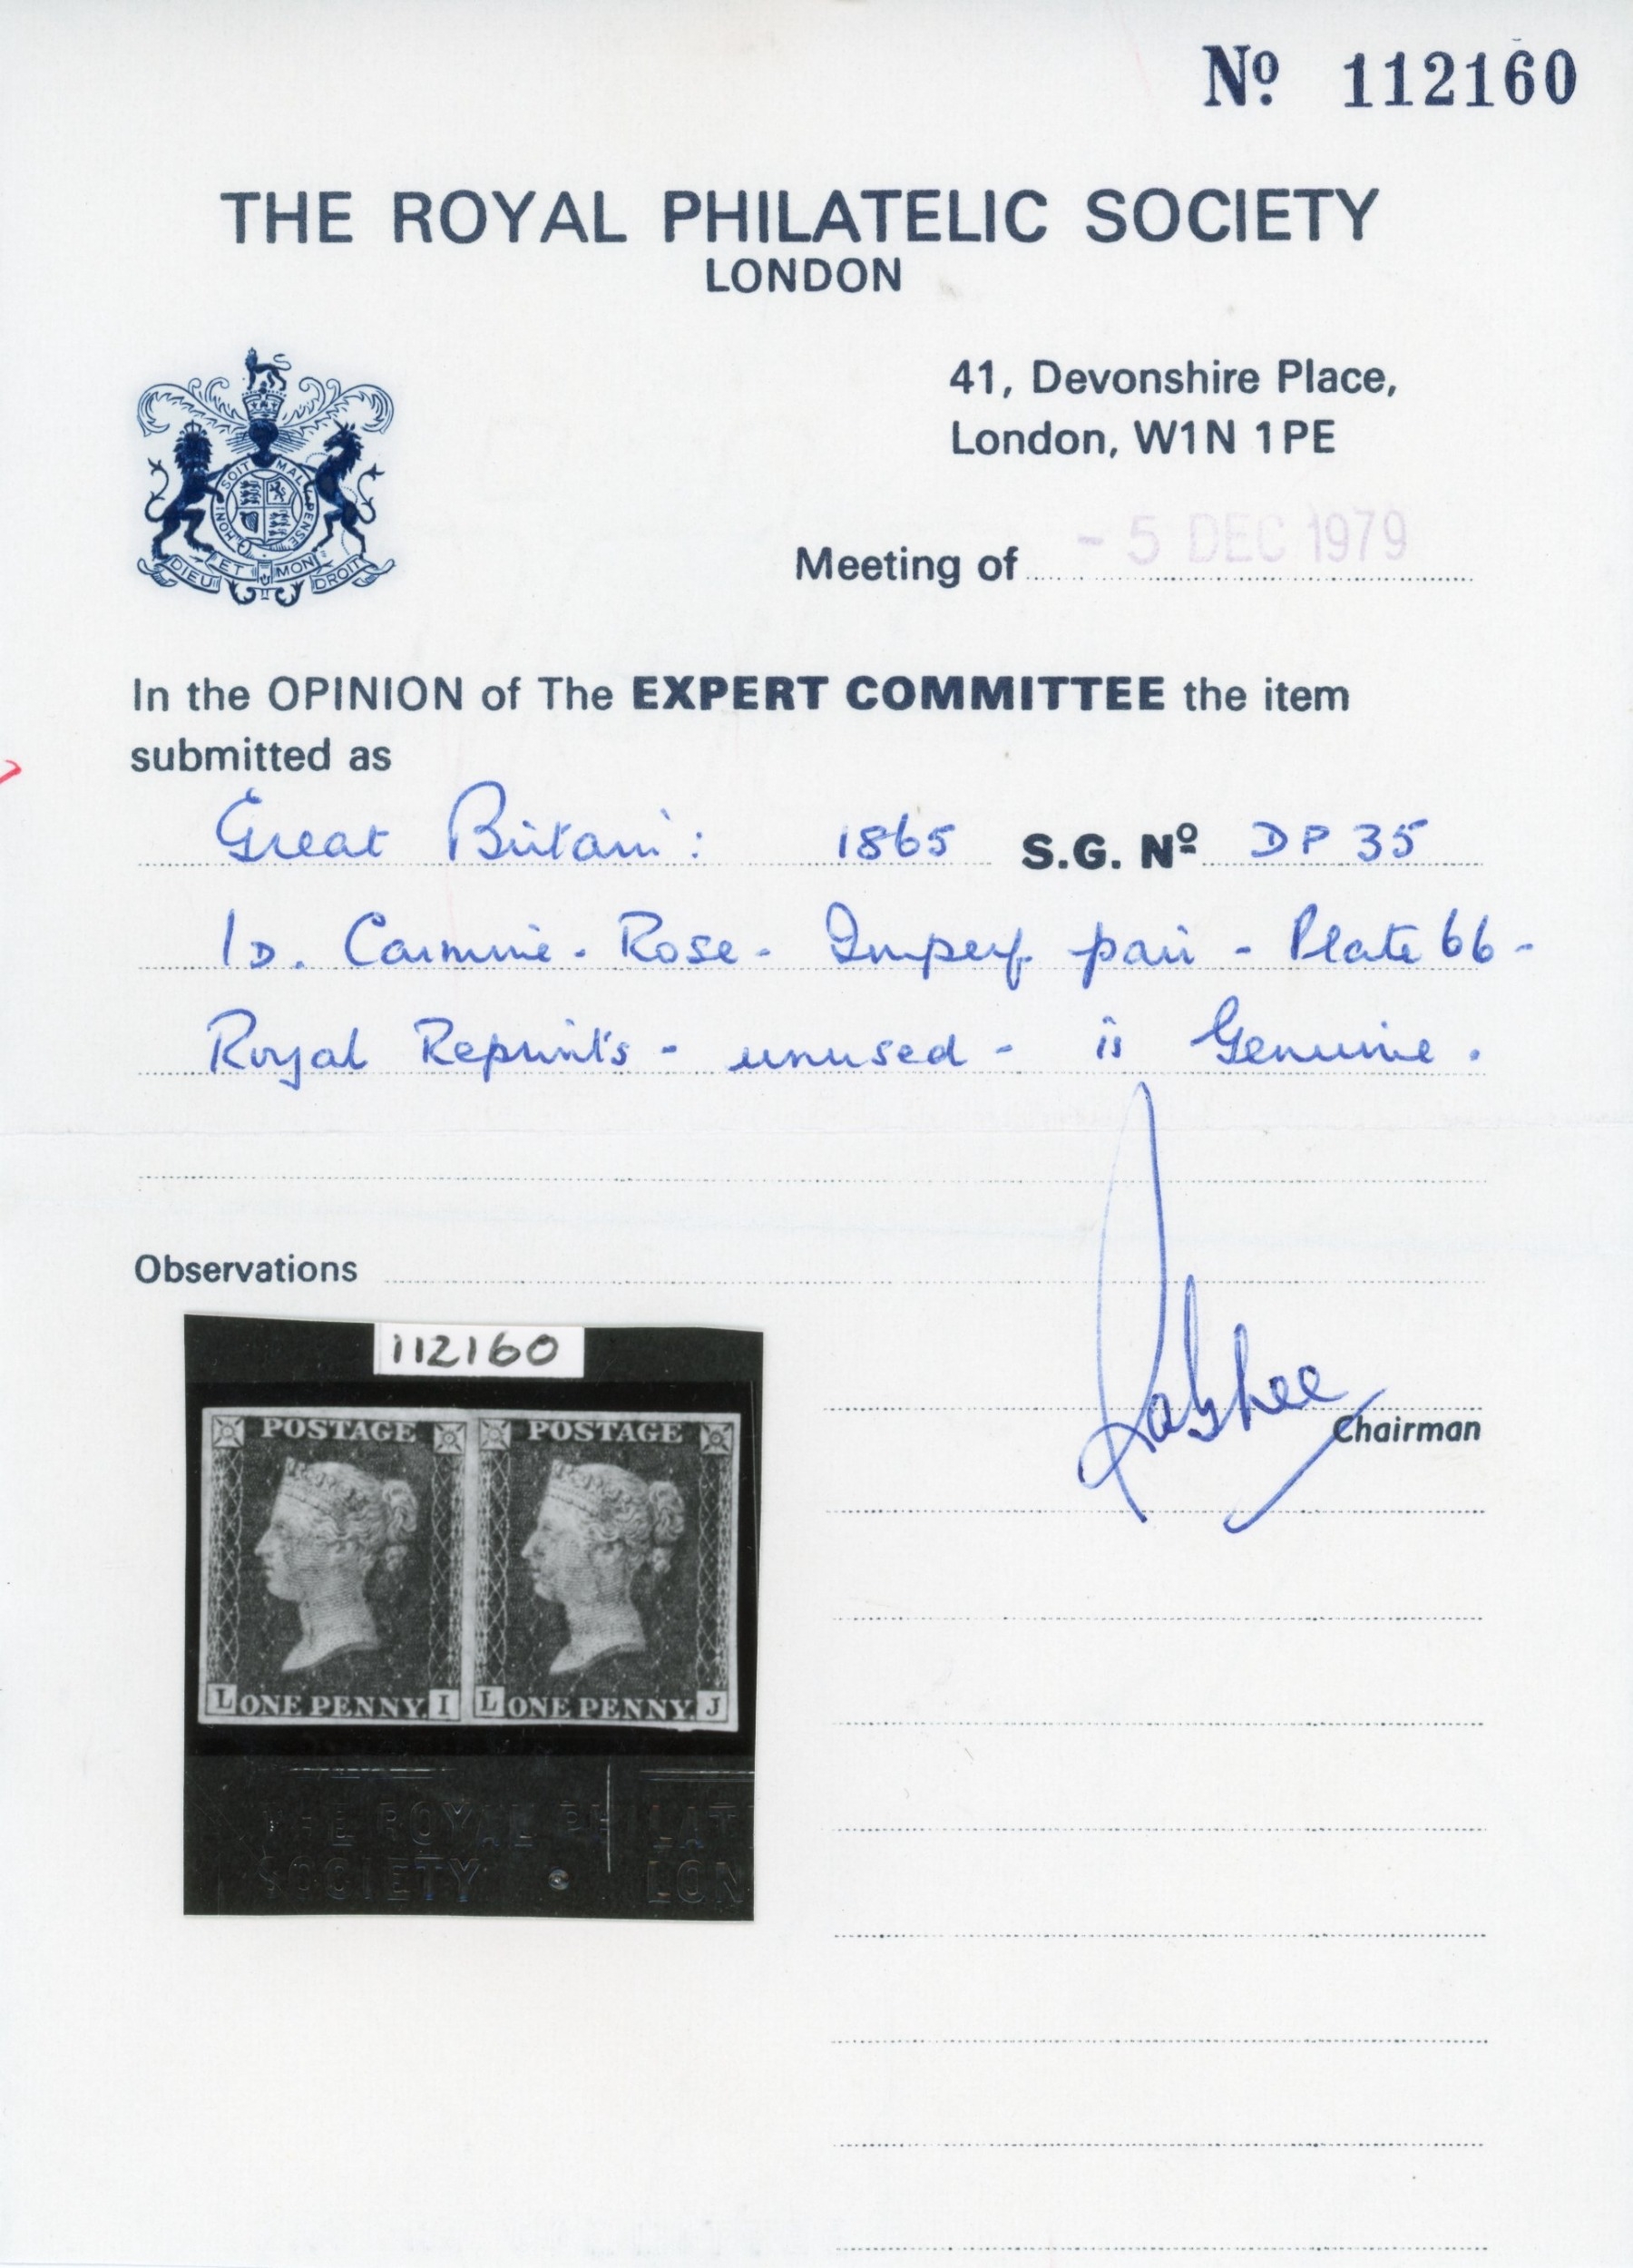 Nº 112160
THE ROYAL PHILATELIC SOCIETY
LONDON
41, Devonshire Place,
London, W1N 1PE
HONI SOIT MAL PENSE
DIEU ET MON DROIT
Meeting of - 5 DEC 1979
In the OPINION of The EXPERT COMMITTEE the item
submitted as
Great Britain: 1865 S.G. Nº DP 35
1D. Carmine-Rose - Imperf. pair - Plate 66 -
Royal Reprints - unused - is Genuine.
Observations
112160
Chairman
POSTAGE POSTAGE
L ONE PENNY. I L ONE PENNY. J
THE ROYAL PHILAT
SOCIETY • LON